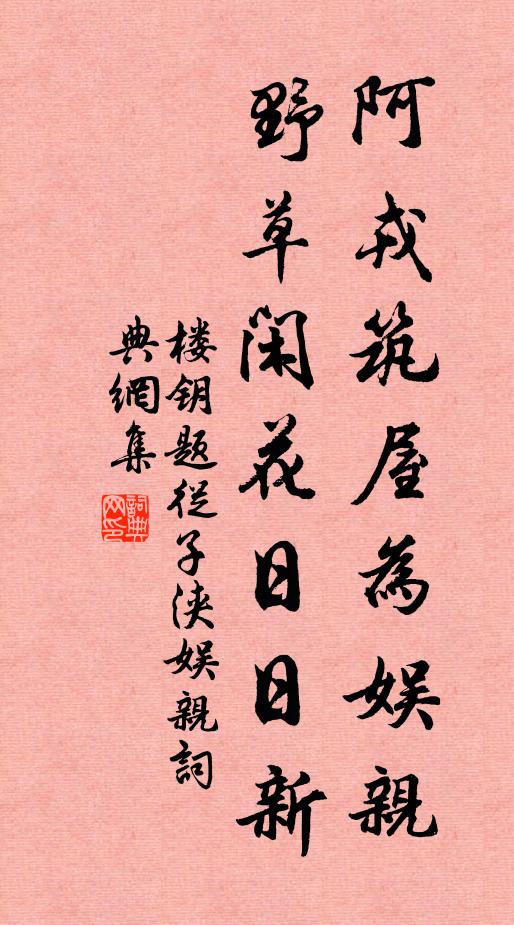 阿戎筑屋為娱親
野草闲花日日新
楼钥题從子浃娱親詞
典網集
詞典
网印